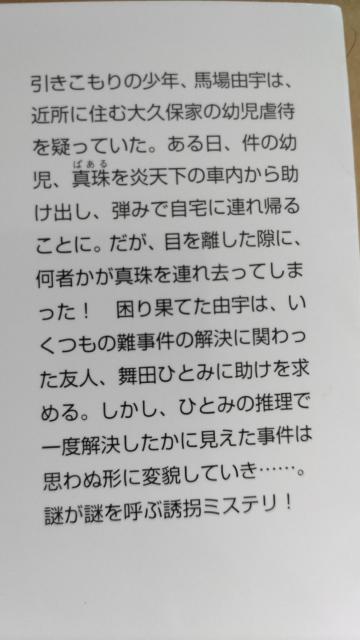 引きこもりの少年、馬場由宇は、
近所に住む大久保家の幼児虐待
を疑っていた。ある日、件の幼
ぱある
児、真珠を炎天下の車内から助
け出し、弾みで自宅に連れ帰る
ことに。だが、目を離した隙に、
何者かが真珠を連れ去ってしま
った！　困り果てた由宇は、い
くつもの難事件の解決に関わっ
た友人、舞田ひとみに助けを求
める。しかし、ひとみの推理で
一度解決したかに見えた事件は
思わぬ形に変貌していき……。
謎が謎を呼ぶ誘拐ミステリ！